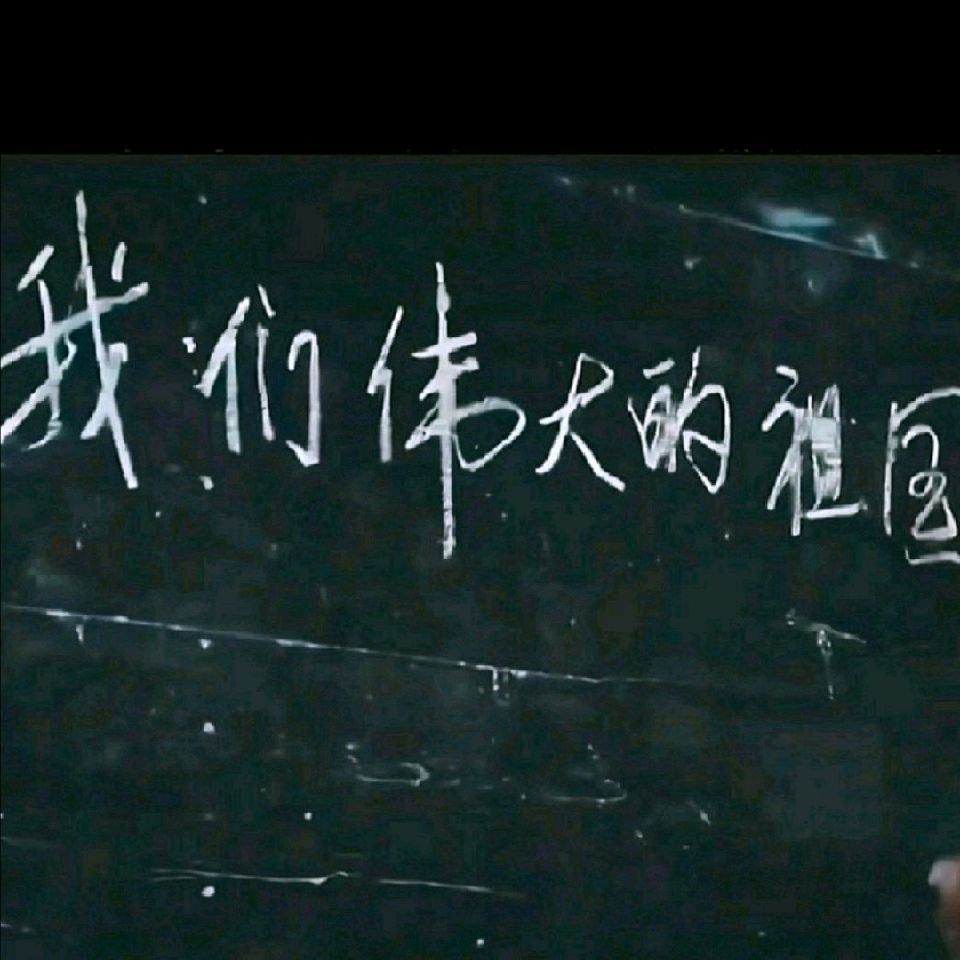 我们伟大的祖国